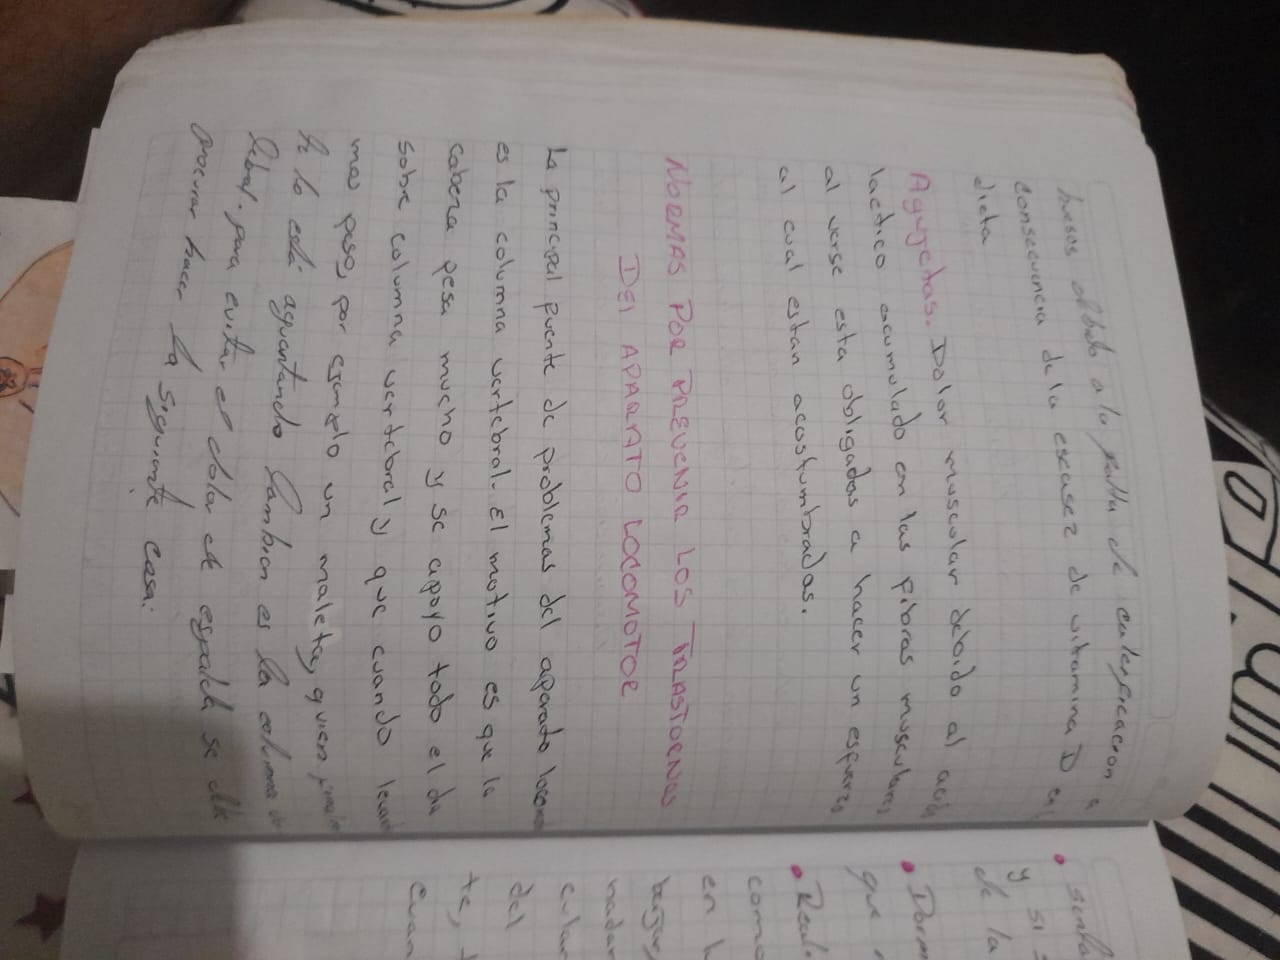 huesos debido a la falta de calcificacion a
consecuencia de la escasez de vitamina D en
dieta
Agujetas. Dolor muscular debido al acid
lactico acumulado en las fibras musculares
al verse esta obligadas a hacer un esfuerzo
al cual estan acostumbradas.
NORMAS POR PREVENIR LOS TRASTORNOS
DEl APARATO LOCOMOTOR
La principal fuente de problemas del aparato locomo
es la columna vertebral. El motivo es que la
cabeza pesa mucho y se apoyo todo el dia
sobre columna vertebral y que cuando levan
mas peso, por ejemplo un maleta, quien
lo está aguantando tambien es la columna
tebral. para evitar el dolor de espalda se debe
procurar hacer la siguiente cosa:
y si
de la
Dorm
que
Reali
como
en l
nadar
culur
del
te,
cuan